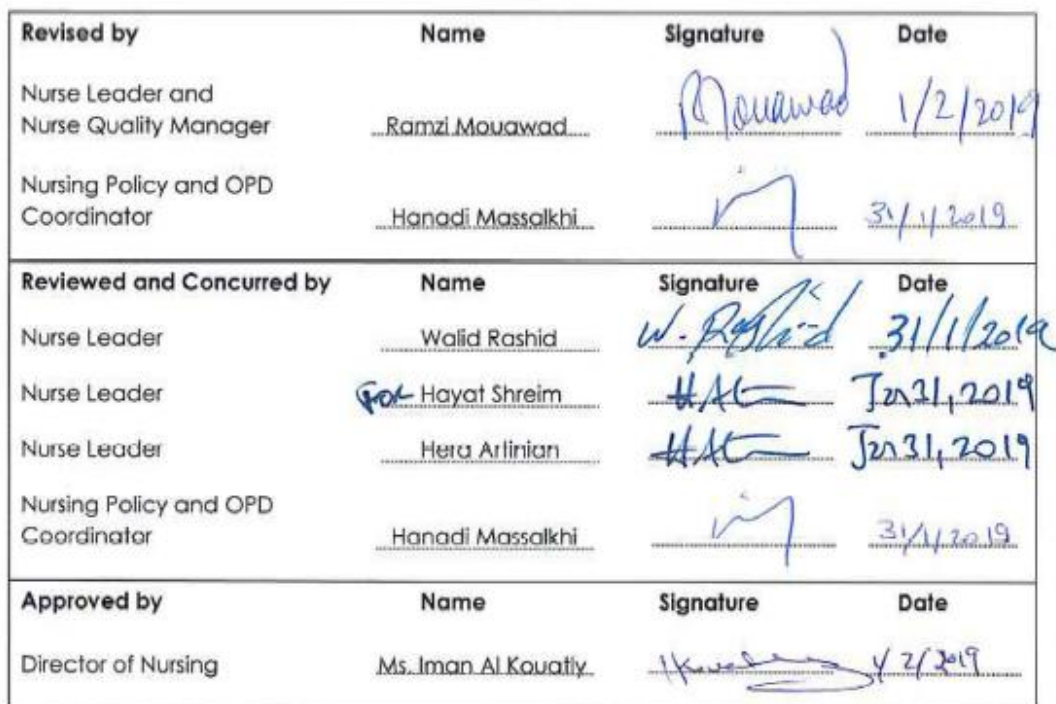 Revised by Name Signature Date
Nurse Leader and
Nurse Quality Manager Ramzi Mouawad Mouawad 1/2/2019
Nursing Policy and OPD
Coordinator Hanadi Massalkhi 31/1/2019
Reviewed and Concurred by Name Signature Date
Nurse Leader Walid Rashid W. Rashid 31/1/2019
Nurse Leader For Hayat Shreim Jan 31, 2019
Nurse Leader Hera Artinian Jan 31, 2019
Nursing Policy and OPD
Coordinator Hanadi Massalkhi 31/1/2019
Approved by Name Signature Date
Director of Nursing Ms. Iman Al Kouatly 1/2/2019